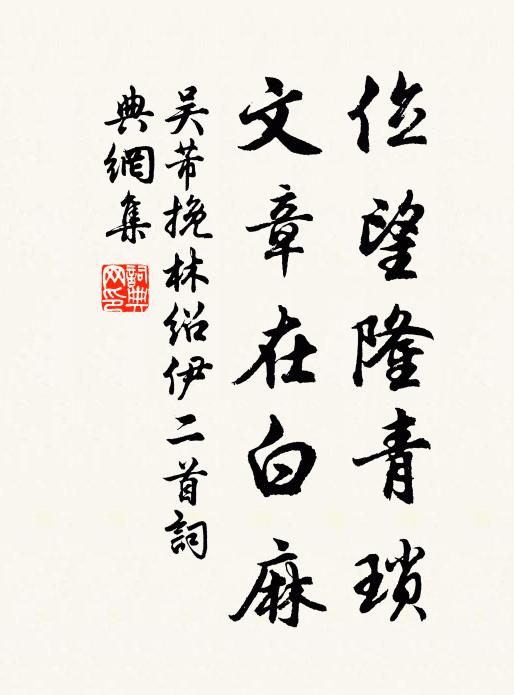 位望隆青瑣
文章在白麻
吴芾挽林绍伊二首詞
典網集
詞典網印